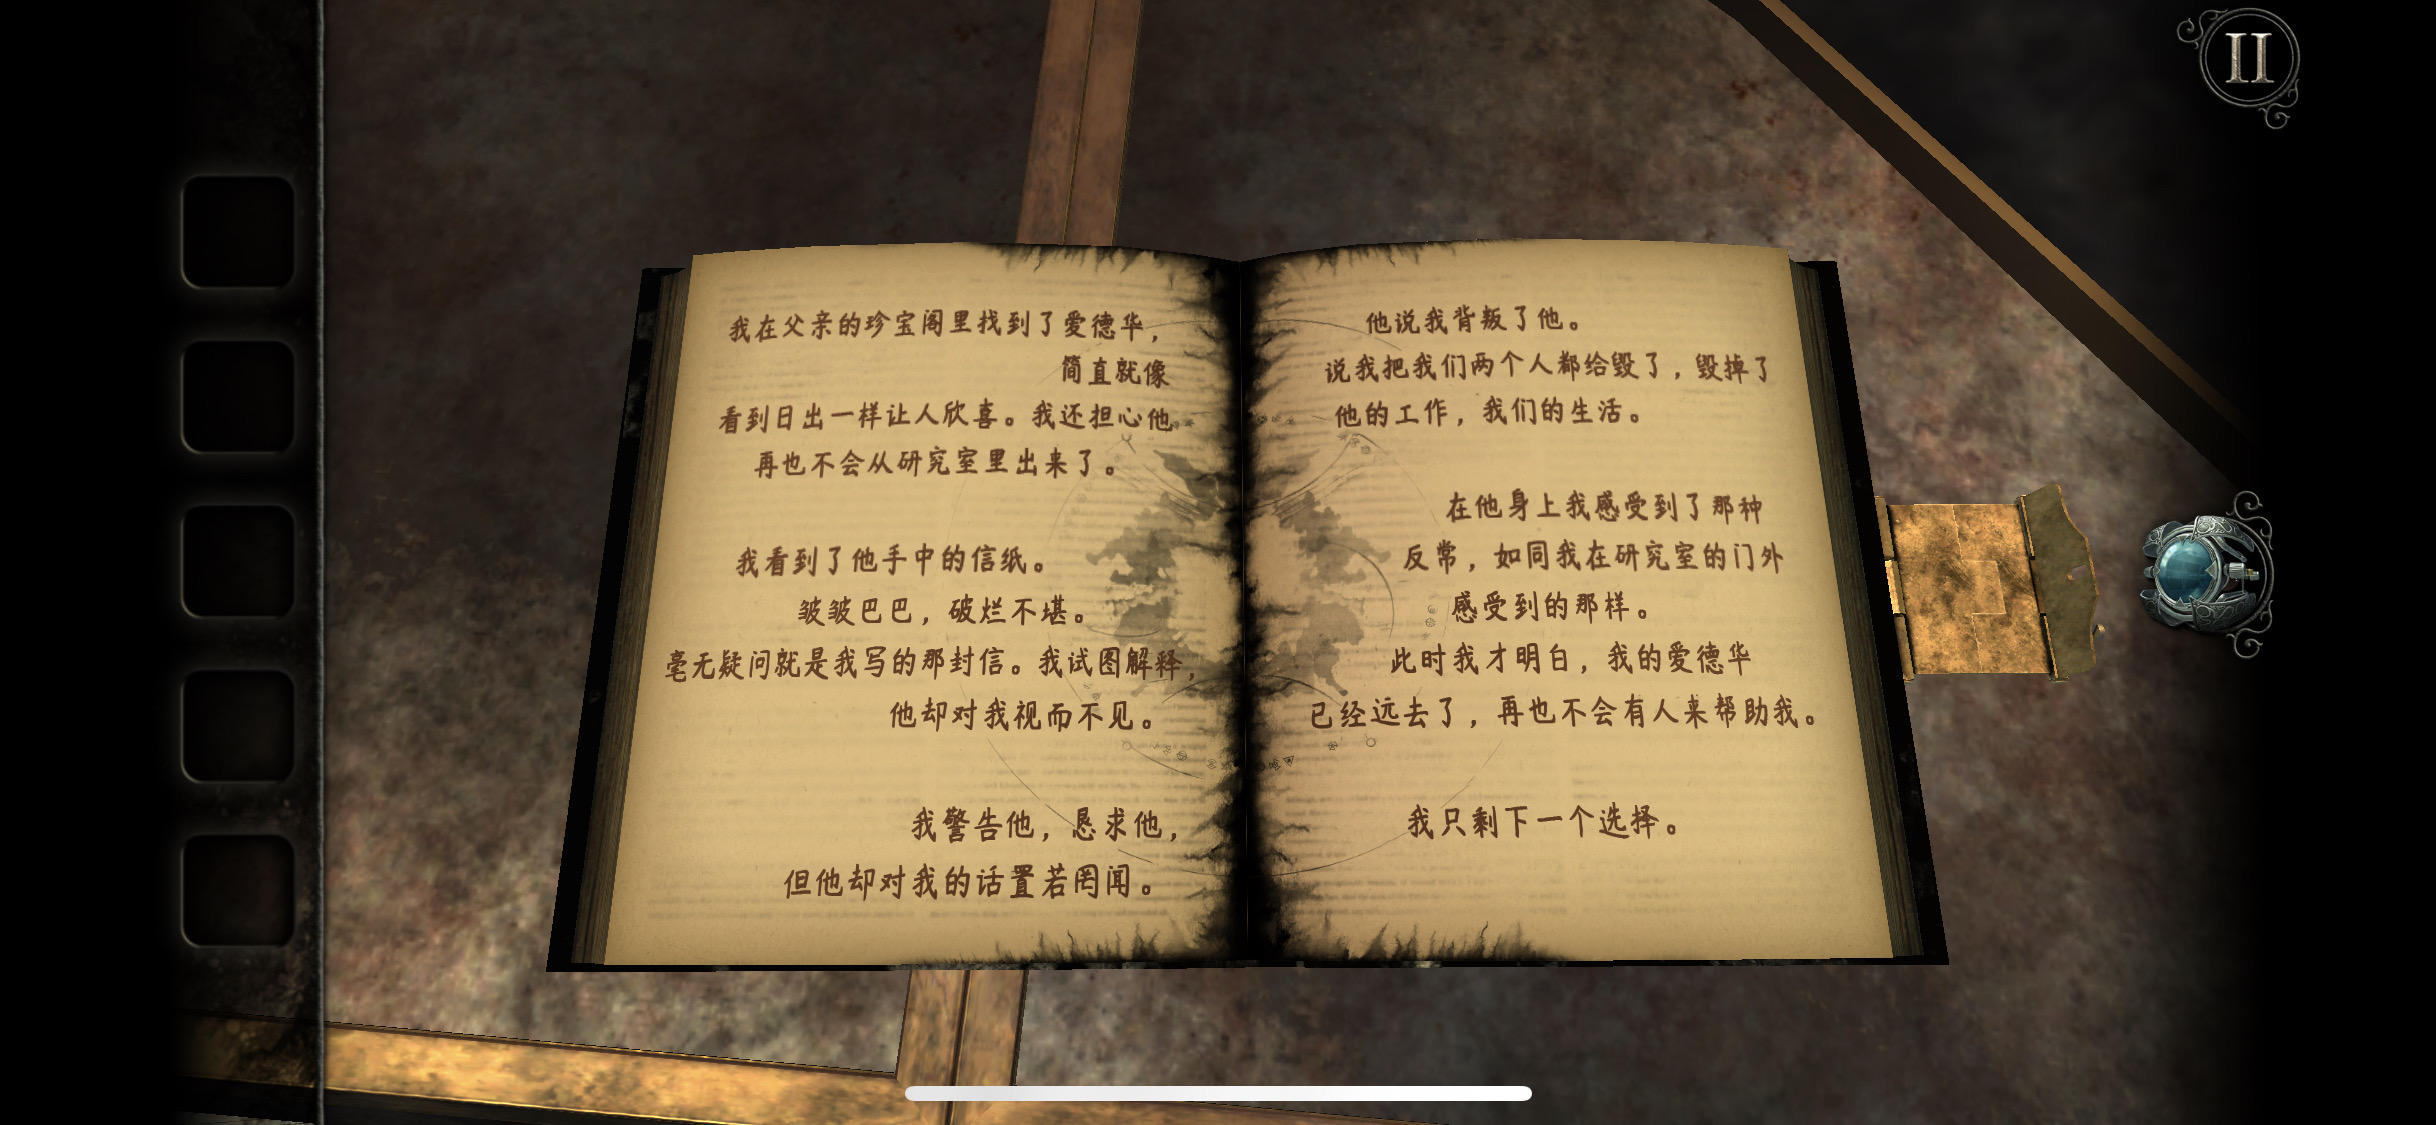 II
我在父亲的珍宝阁里找到了爱德华，
简直就像
看到日出一样让人欣喜。我还担心他
再也不会从研究室里出来了。
我看到了他手中的信纸。
皱皱巴巴，破烂不堪。
毫无疑问就是我写的那封信。我试图解释，
他却对我视而不见。
我警告他，恳求他，
但他却对我的话置若罔闻。
他说我背叛了他。
说我把我们两个人都给毁了，毁掉了
他的工作，我们的生活。
在他身上我感受到了那种
反常，如同我在研究室的门外
感受到的那样。
此时我才明白，我的爱德华
已经远去了，再也不会有人来帮助我。
我只剩下一个选择。